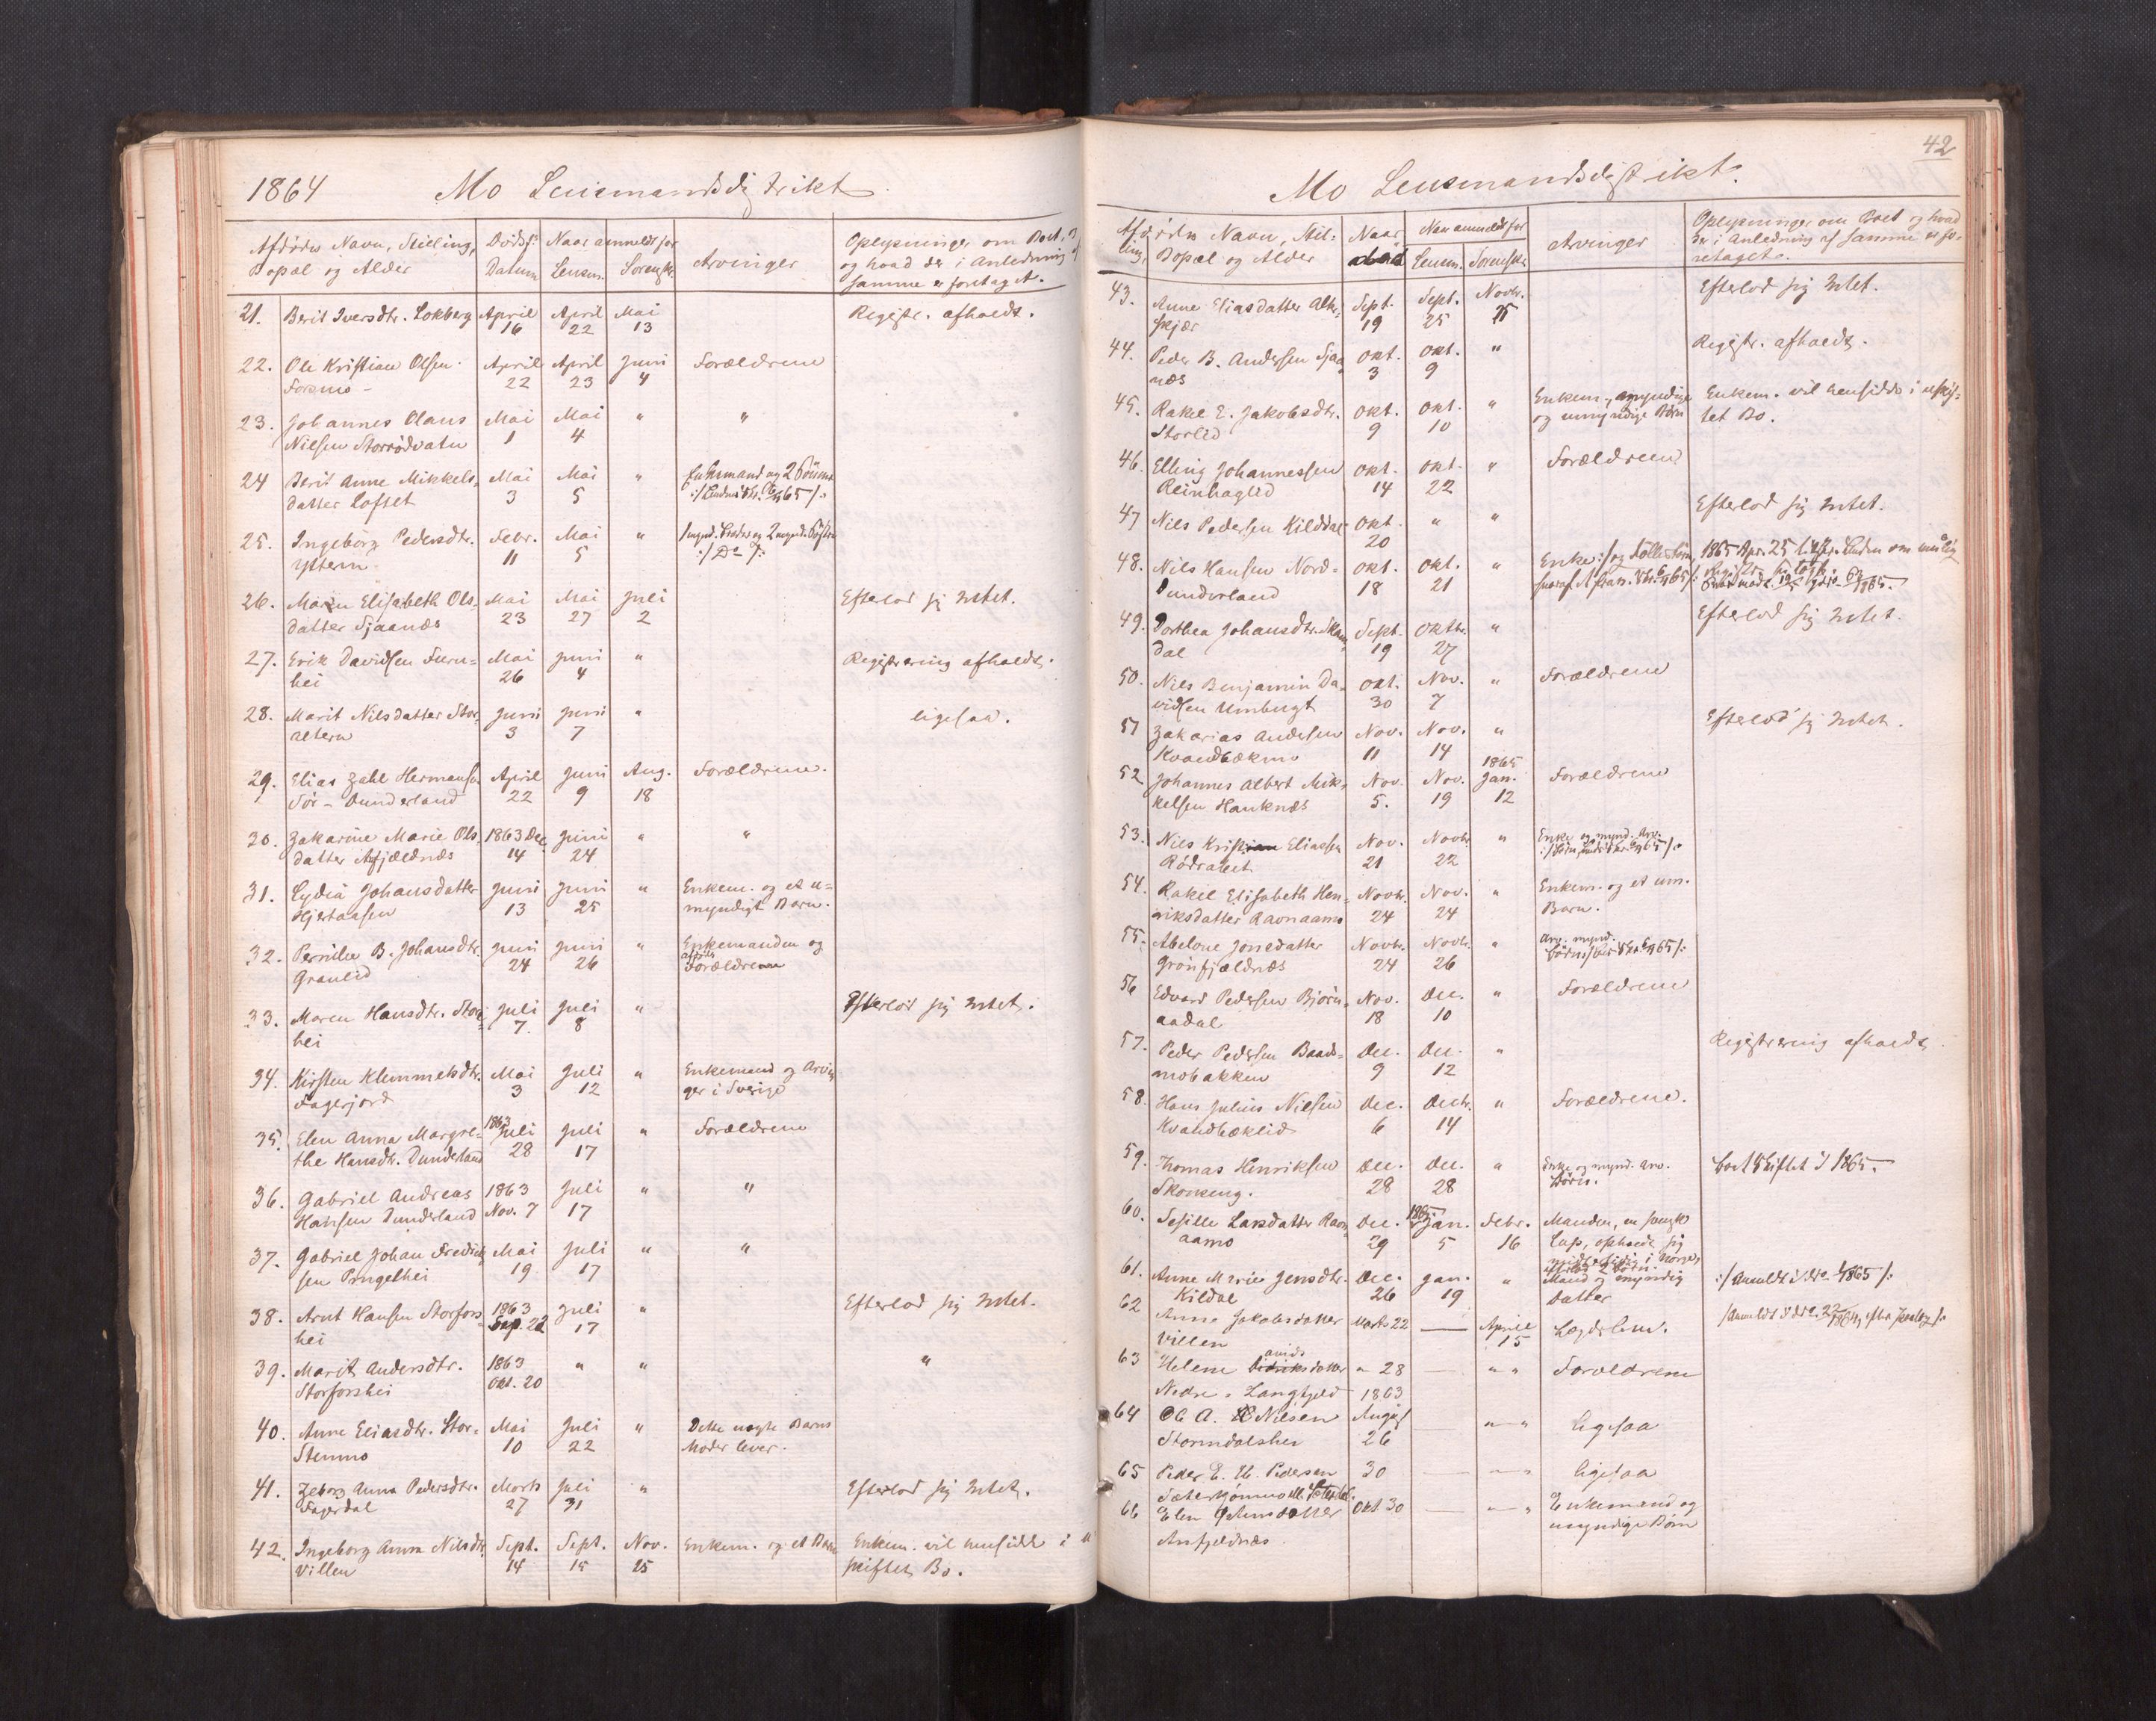 1864 Mo Lensmandsdistrikt
Afdødes Navn, Stilling, Dødsf: Naar anmeldt for Arvinger Oplysninger om Boet,
Bopæl og Alder Datum Lensm. Sorenskr. og hvad der i Anledning af
samme er foretaget.
21. Berit Iversdtr. Lokberg April April Mai Registr. afholdt.
16 22 13
22. Ole Kristian Olsen April April Juni Forældrene
Forsmo 22 23 4
23. Johannes Olaus Mai Mai " "
Nilsen Storrødvatn 1 4
24 Berit Anne Mikkels- Mai Mai " Enkemand og 2 Börn
datter Loftet 3 5
25. Ingebörg Pedersdtr. Febr. Mai "
Ytteren 11 5
26. Maren Elisabeth Ols- Mai Mai Juli Efterlod sig Intet.
datter Sjaanæs 23 27 2
27. Erik Davidsen Furu- Mai Juni " Registrering afholdt.
hei 26 4
28. Marit Nilsdatter Stor- Juni Juni " ligesaa.
altern 3 7
29. Elias Zahl Hermans. April Juni Aug. Forældrene.
Sör-Dunderland 22 9 18
30. Zakarine Marie Ols- 1863 Dec Juni " "
datter Asfjældnæs 14 24
31. Lydia Johansdatter Juni Juni " Enkem. og et u-
Hjertaasen 13 25 myndigt Barn.
32. Pernille B. Johansdtr. Juni Juni " Enkemanden og
Granlid 24 26 Forældrene
33. Maren Hansdtr. Stor- Juli Juli " Efterlod sig Intet.
hei 7. 8
34. Kirsten Klemmetsdtr. Mai Juli " Enkemand og Arvin
Fagerjord 3 12 ger i Sverige
35. Elen Anna Margre- 1863 Juli Juli " Forældrene
the Hansdtr. Dunderland 28 17
36. Gabriel Andreas 1863 Juli " "
Hansen Dunderland Nov. 7 17
37. Gabriel Johan Fredrik Mai Juli " "
sen Pruglhei 19 17
38. Arnt Hansen Storfors- 1863 Juli " Efterlod sig Intet.
hei Sep. 22 17
39. Marit Andersdtr. 1863 " " "
Storforshei Okt. 20
40. Anne Eliasdtr. Stor- Mai Juli " Dette uægte Barns
Stenmo 10 22 Moder lever.
41. Zeborg Anna Pedersdtr. Marts Juli " Efterlod sig Intet.
Fagerdal 27 31
42. Ingeborg Anna Nilsdtr. Sept. Sept. Nov. Enkem. og et Barn Enkem. vil hensidde i u
Villen 14 15 25 skiftet Bo.
42
Mo Lensmandsdistrikt.
Afdødes Navn, Stil- Naar Naar anmeldt for Arvinger Oplysninger om Boet og hvad
ling, Bopæl og Alder död Lensm. Sorenskr. der i Anledning af samme er fo-
retaget.
43. Anne Eliasdatter Alte- Sept. Sept. Novbr. Efterlod sig Intet.
skjær 19 25 25
44. Peder B. Andersen Sjaa Okt. Okt. " Registr. afholdt.
næs 3 9
45. Rakel E. Jakobsdtr. Okt. Okt. " Enkem., myndige Enkem. vil hensidde i uskif-
Storlid 9 10 og umyndige Börn tet Bo.
46. Elling Johannessen Okt. Okt. " Forældrene
Reinhaglid 14 22
47 Nils Pedersen Kilddal Okt. " " Efterlod sig Intet.
20
48. Nils Hansen Nord- Okt. Okt. " Enke
Dunderland 18 21
49. Dorthea Johansdtr. Skam Sept. Oktbr. " Efterlod sig Intet.
dal 19 27
50. Nils Benjamin Da- Okt. Nov. " Forældrene
vidsen Umbugt 30 7
51 Zakarias Andersen Nov. Nov. " Efterlod sig Intet.
Kvandbækmo 11 14
52 Johannes Albert Mik- Nov. Nov. 1865 Jan. Forældrene
kelsen Hauknæs 5. 19 12
53. Nils Kristian Eliassen Nov. Novbr. " Enke og mynd. Arv.
Rödvaleit 21 22
54. Rakel Elisabeth Hen- Novbr. Nov. " Enkem. og et um.
riksdatter Ravnaamo 24 24 Barn.
55. Abelone Jonsdatter Novbr. Novbr. " Arv. mynd.
Grönfjældnæs 24 26
56 Edvard Pedersen Bjørn- Nov. Dec. " Forældrene
aadal 18 10
57. Peder Pedersen Baads- Dec. Dec. " Registrering afholdt
mobakken 9 12
58. Hans Julius Nilsen Dec. Decbr. " Forældrene.
Kvandbæklid 6 14
59. Thomas Henriksen Dec. Dec. " Enke og mynd. Arv. Boet skiftet i 1865.
Skonseng. 28 28 Börn.
60. Sesille Larsdatter Ravn Dec. 1865 Jan. Febr. Manden, en svensk
aamo 29 5 16 Lap, opholdt sig
61. Anne Marie Jensdtr. Dec. Jan. " Mand og myndig
Kildal 26 19 Datter
62 Anne Jakobsdatter Marts 22 — April Lægdslem.
Villen 15
63 Helene Didriksdatter " 28 — " " Forældrene
Nedre-Langfjeld 1863
64 Ole A. Nilsen August " — " ligesaa
Stormdalshei 26
65 Peder E. Pedersen 30 — " — " ligesaa
66 Elen Jensdatter Okt 30 — " — " Enkemand og
Anfjeldnæs. umyndige Börn